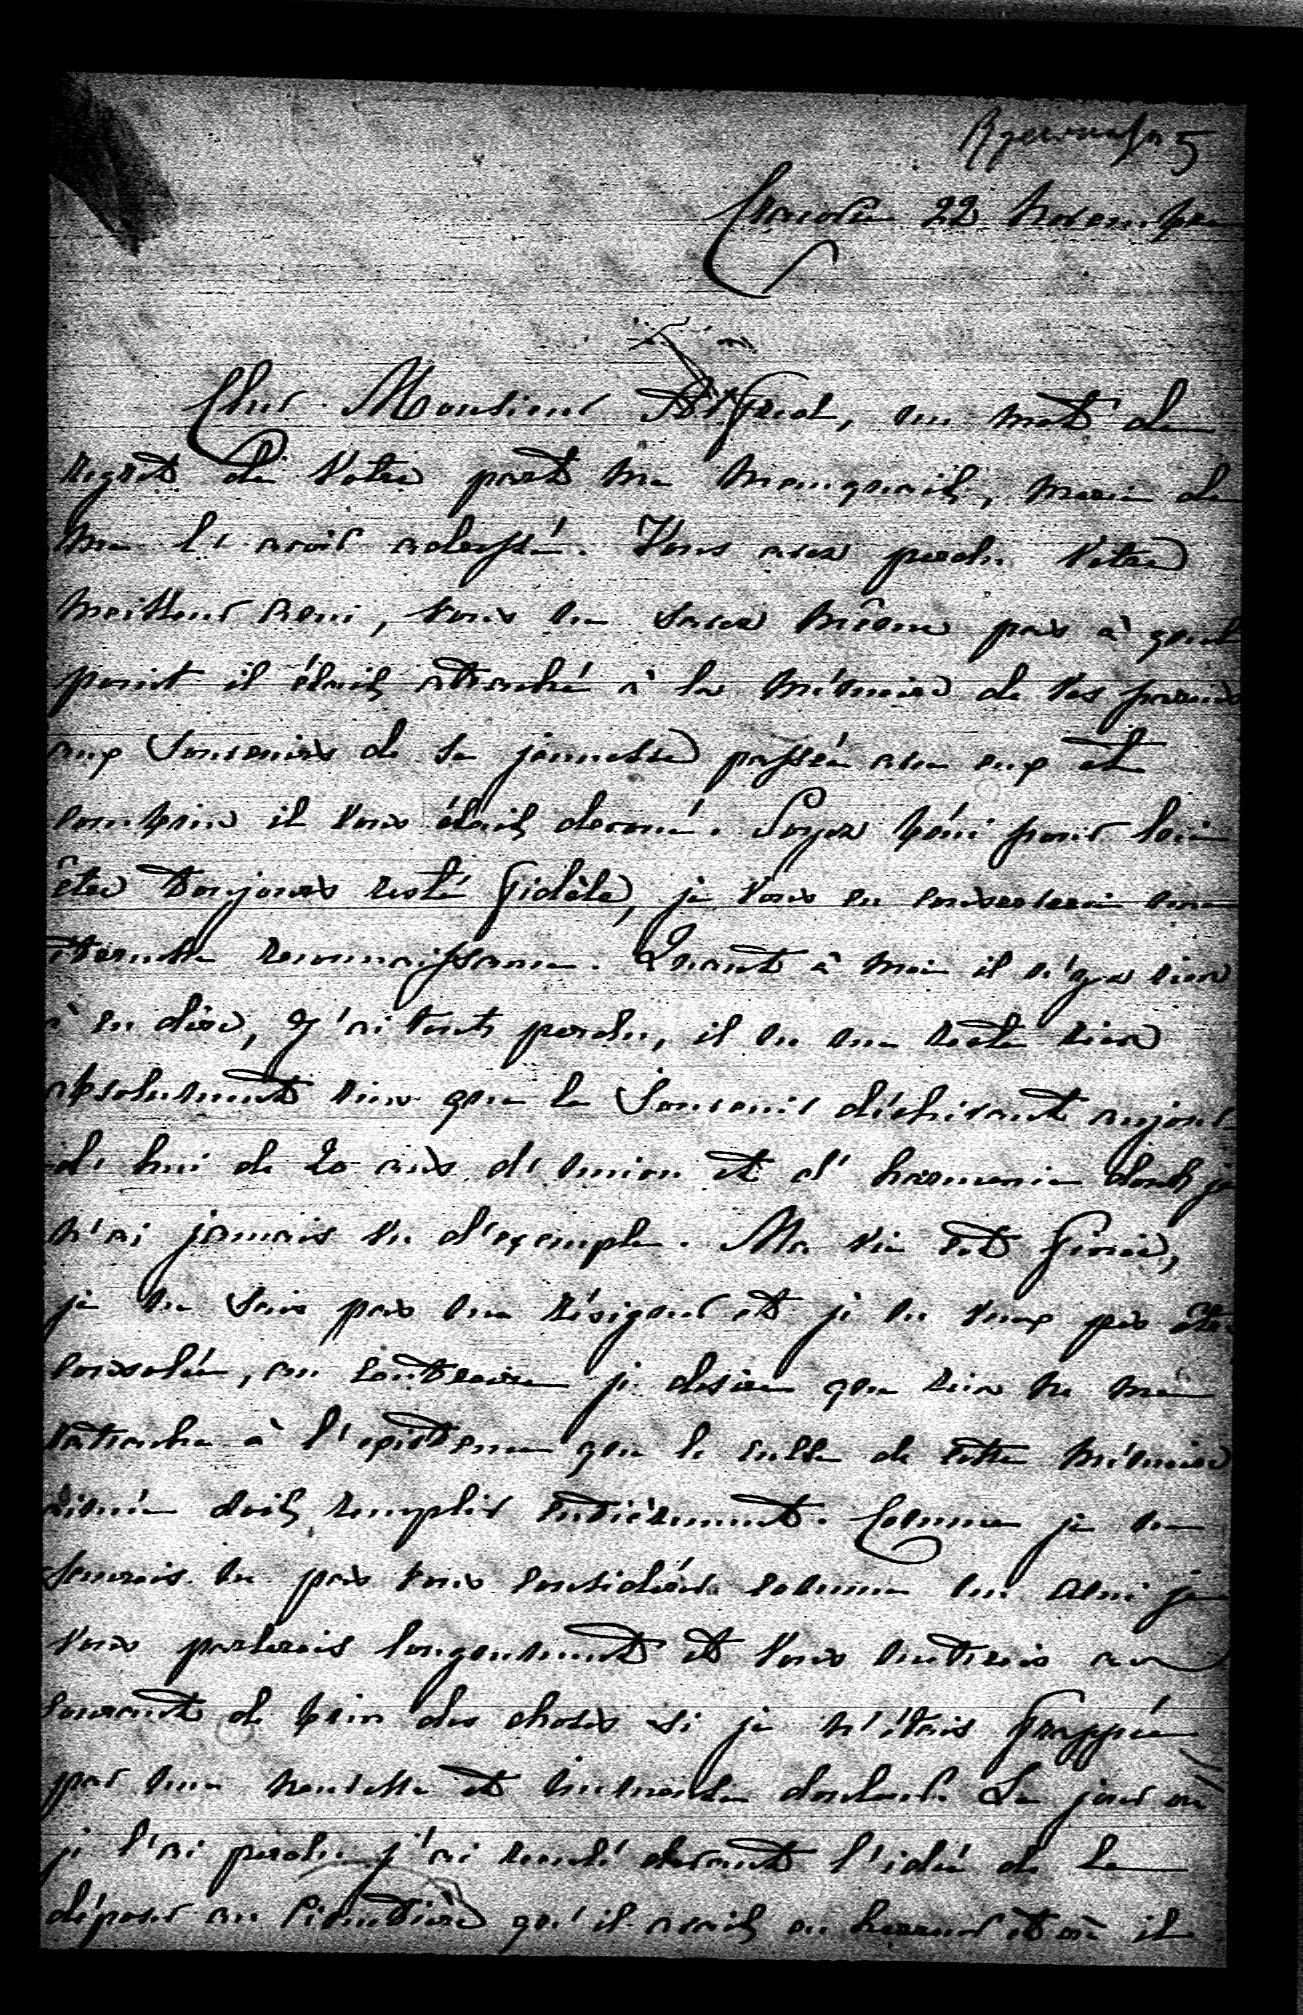 22 Novembre
Cher Monsieur un mot de
regret de Votre part me manquait, merci de
me l'avoir adressé. Vous avez perdu Votre
meilleur ami, Vous ne savez même pas à quel
point il était attaché à la mémoire de Vos parents
aux Souvenirs de sa jeunesse passée avec eux et
combien il Vous était devoué. Soyez béni pour lui
être toujours resté fidèle, je Vous en conserverai une
éternelle reconnaissance. Quant à moi il n'y a rien
à en dire, J'ai tout perdu, il ne me reste rien
absolument rien que le Souvenir déchirant aujour
d'hui de 20 ans d'union et d'harmonie dont je
n'ai jamais vu d'exemple. Ma vie est finie,
je ne sais pas me résigner et je ne veux pas être
consolée, au contraire je desire que rien ne me
rattache à l'existence que le culte de cette mémoire
aimée doit remplir entièrement. Comme je ne
saurais ne pas vous considérer comme un ami je
Vous parlerais longuement et Vous mettrais au
courant de bien des choses si je n'étais frappée
par une nouvelle et immense douleur. Le jour où
je l'ai perdu j'ai reculé devant l'idée de le
déposer au Cimetière qu'il avait en horreur et où il